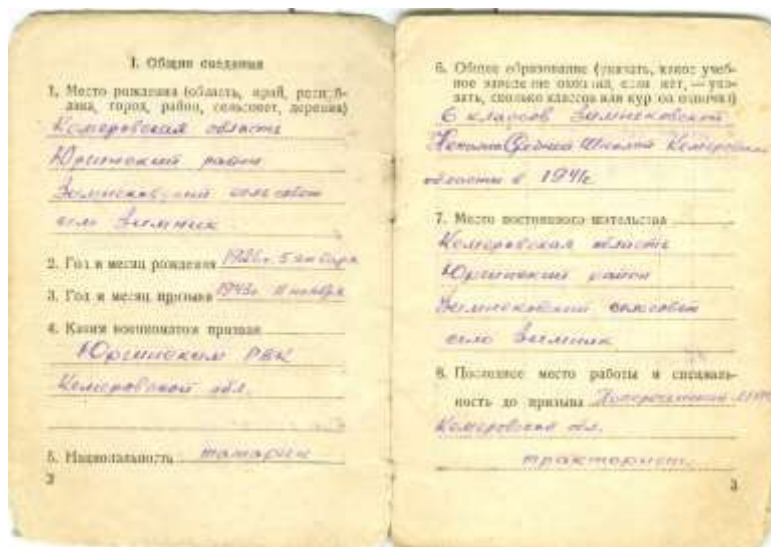 I. Общие сведения
1. Место рождения (область, край, респуб-
лика, город, район, сельсовет, деревня)
Кемеровская область
Юргинский район
Зимнековский сельсовет
село Зимник
2. Год и месяц рождения 1926г. 5 января
3. Год и месяц призыва 1943г 11 ноября
4. Каким военкоматом призван
Юргинским РВК
Кемеровской обл.
5. Национальность татарин
2
6. Общее образование (указать, какое учеб-
ное заведение окончил, если нет, — ука-
зать, сколько классов или курсов окончил)
6 классов Зимнековской
Школы Кемеровской
области в 1941г.
7. Место постоянного жительства
Кемеровская область
Юргинский район
Зимнековский сельсовет
село Зимник
8. Последнее место работы и специаль-
ность до призыва
Кемеровская обл.
тракторист.
3